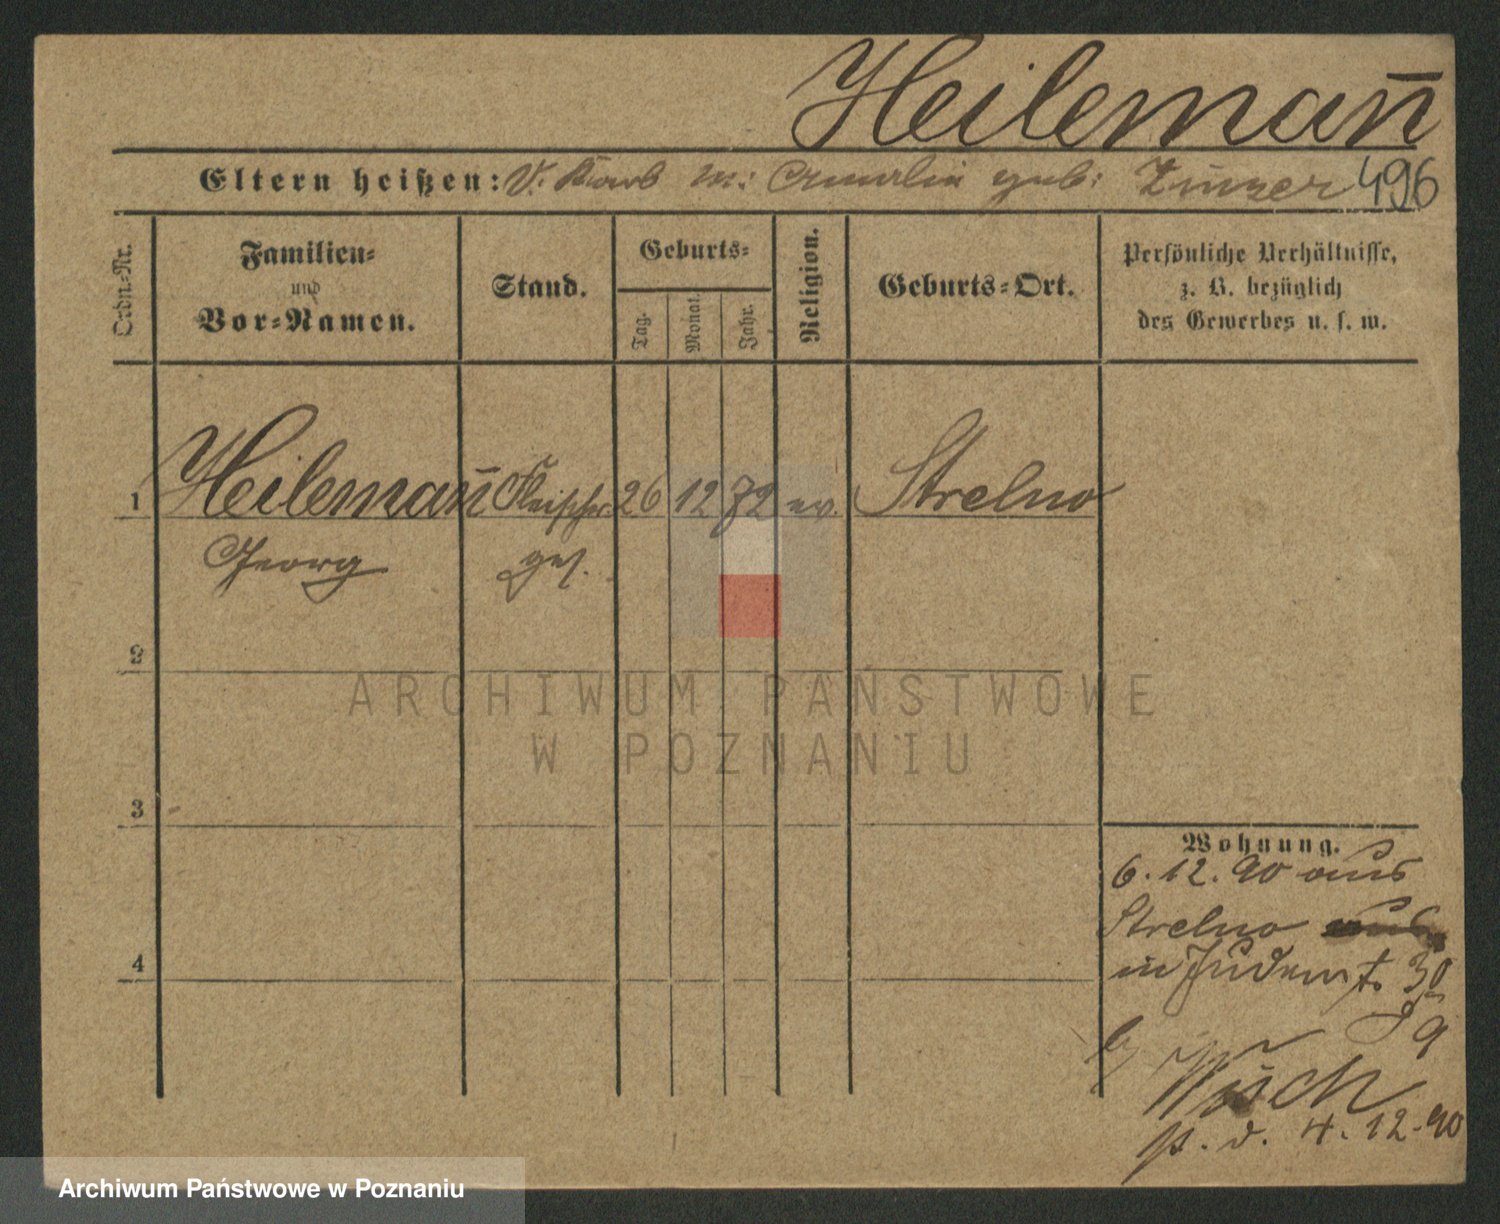 Heileman̄
Eltern heißen: V. Karl M: Amalie geb: Zinzer 496
Ordn.-Nr.
Familien-
und
Vor-Namen.
Stand.
Geburts-
Tag.
Monat.
Jahr.
Religion.
Geburts-Ort.
Persönliche Verhältnisse,
z. B. bezüglich
des Gewerbes u. s. w.
1 Heileman̄ Fleischer 26 12 72 ev. Strelno
Georg ges.
2
ARCHIWUM PAŃSTWOWE
W POZNANIU
3
Wohnung.
6.12.90 aus
Strelno
4
in Judenst. 30
bz
p. d. 4.12.90
Archiwum Państwowe w Poznaniu